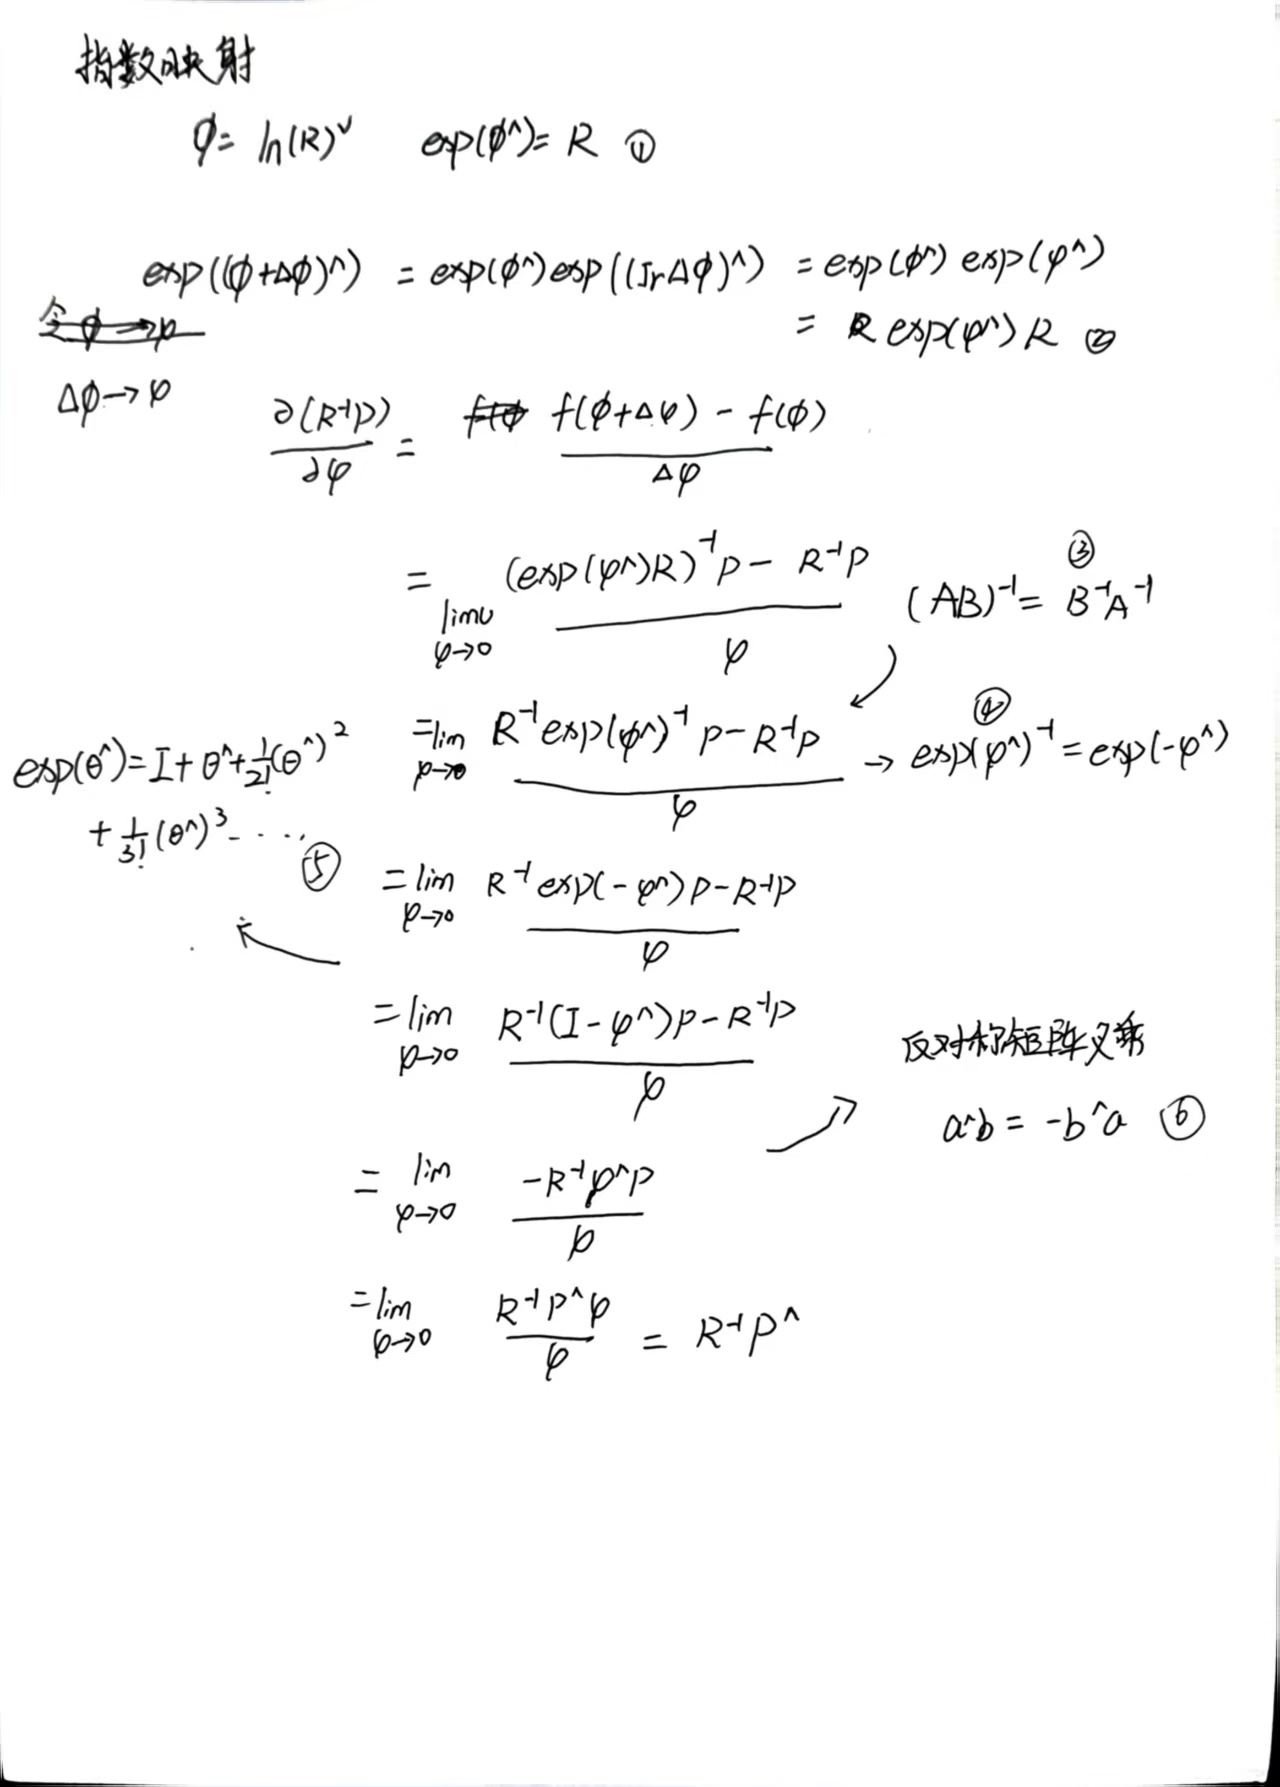 指数映射
ϕ = ln(R)^∨ exp(ϕ^) = R ①
exp((ϕ+Δϕ)^) = exp(ϕ^)exp((JrΔϕ)^) = exp(ϕ^) exp(φ^)
= R exp(φ^) R ②
令 ϕ → φ
Δϕ → φ
∂(R⁻¹P)/∂φ = f(ϕ f(ϕ+Δφ) - f(ϕ) / Δφ
= lim φ→0 (exp(φ^)R)⁻¹P - R⁻¹P / φ
(AB)⁻¹ = B⁻¹A⁻¹ ③
= lim φ→0 R⁻¹exp(φ^)⁻¹P - R⁻¹P / φ → exp(φ^)⁻¹ = exp(-φ^) ④
exp(θ^) = I + θ^ + 1/2!(θ^)²
+ 1/3!(θ^)³ ····· ⑤
= lim φ→0 R⁻¹exp(-φ^)P - R⁻¹P / φ
= lim φ→0 R⁻¹(I - φ^)P - R⁻¹P / φ
反对称矩阵叉乘
a^b = -b^a ⑥
= lim φ→0 -R⁻¹φ^P / φ
= lim φ→0 R⁻¹P^φ / φ = R⁻¹P^